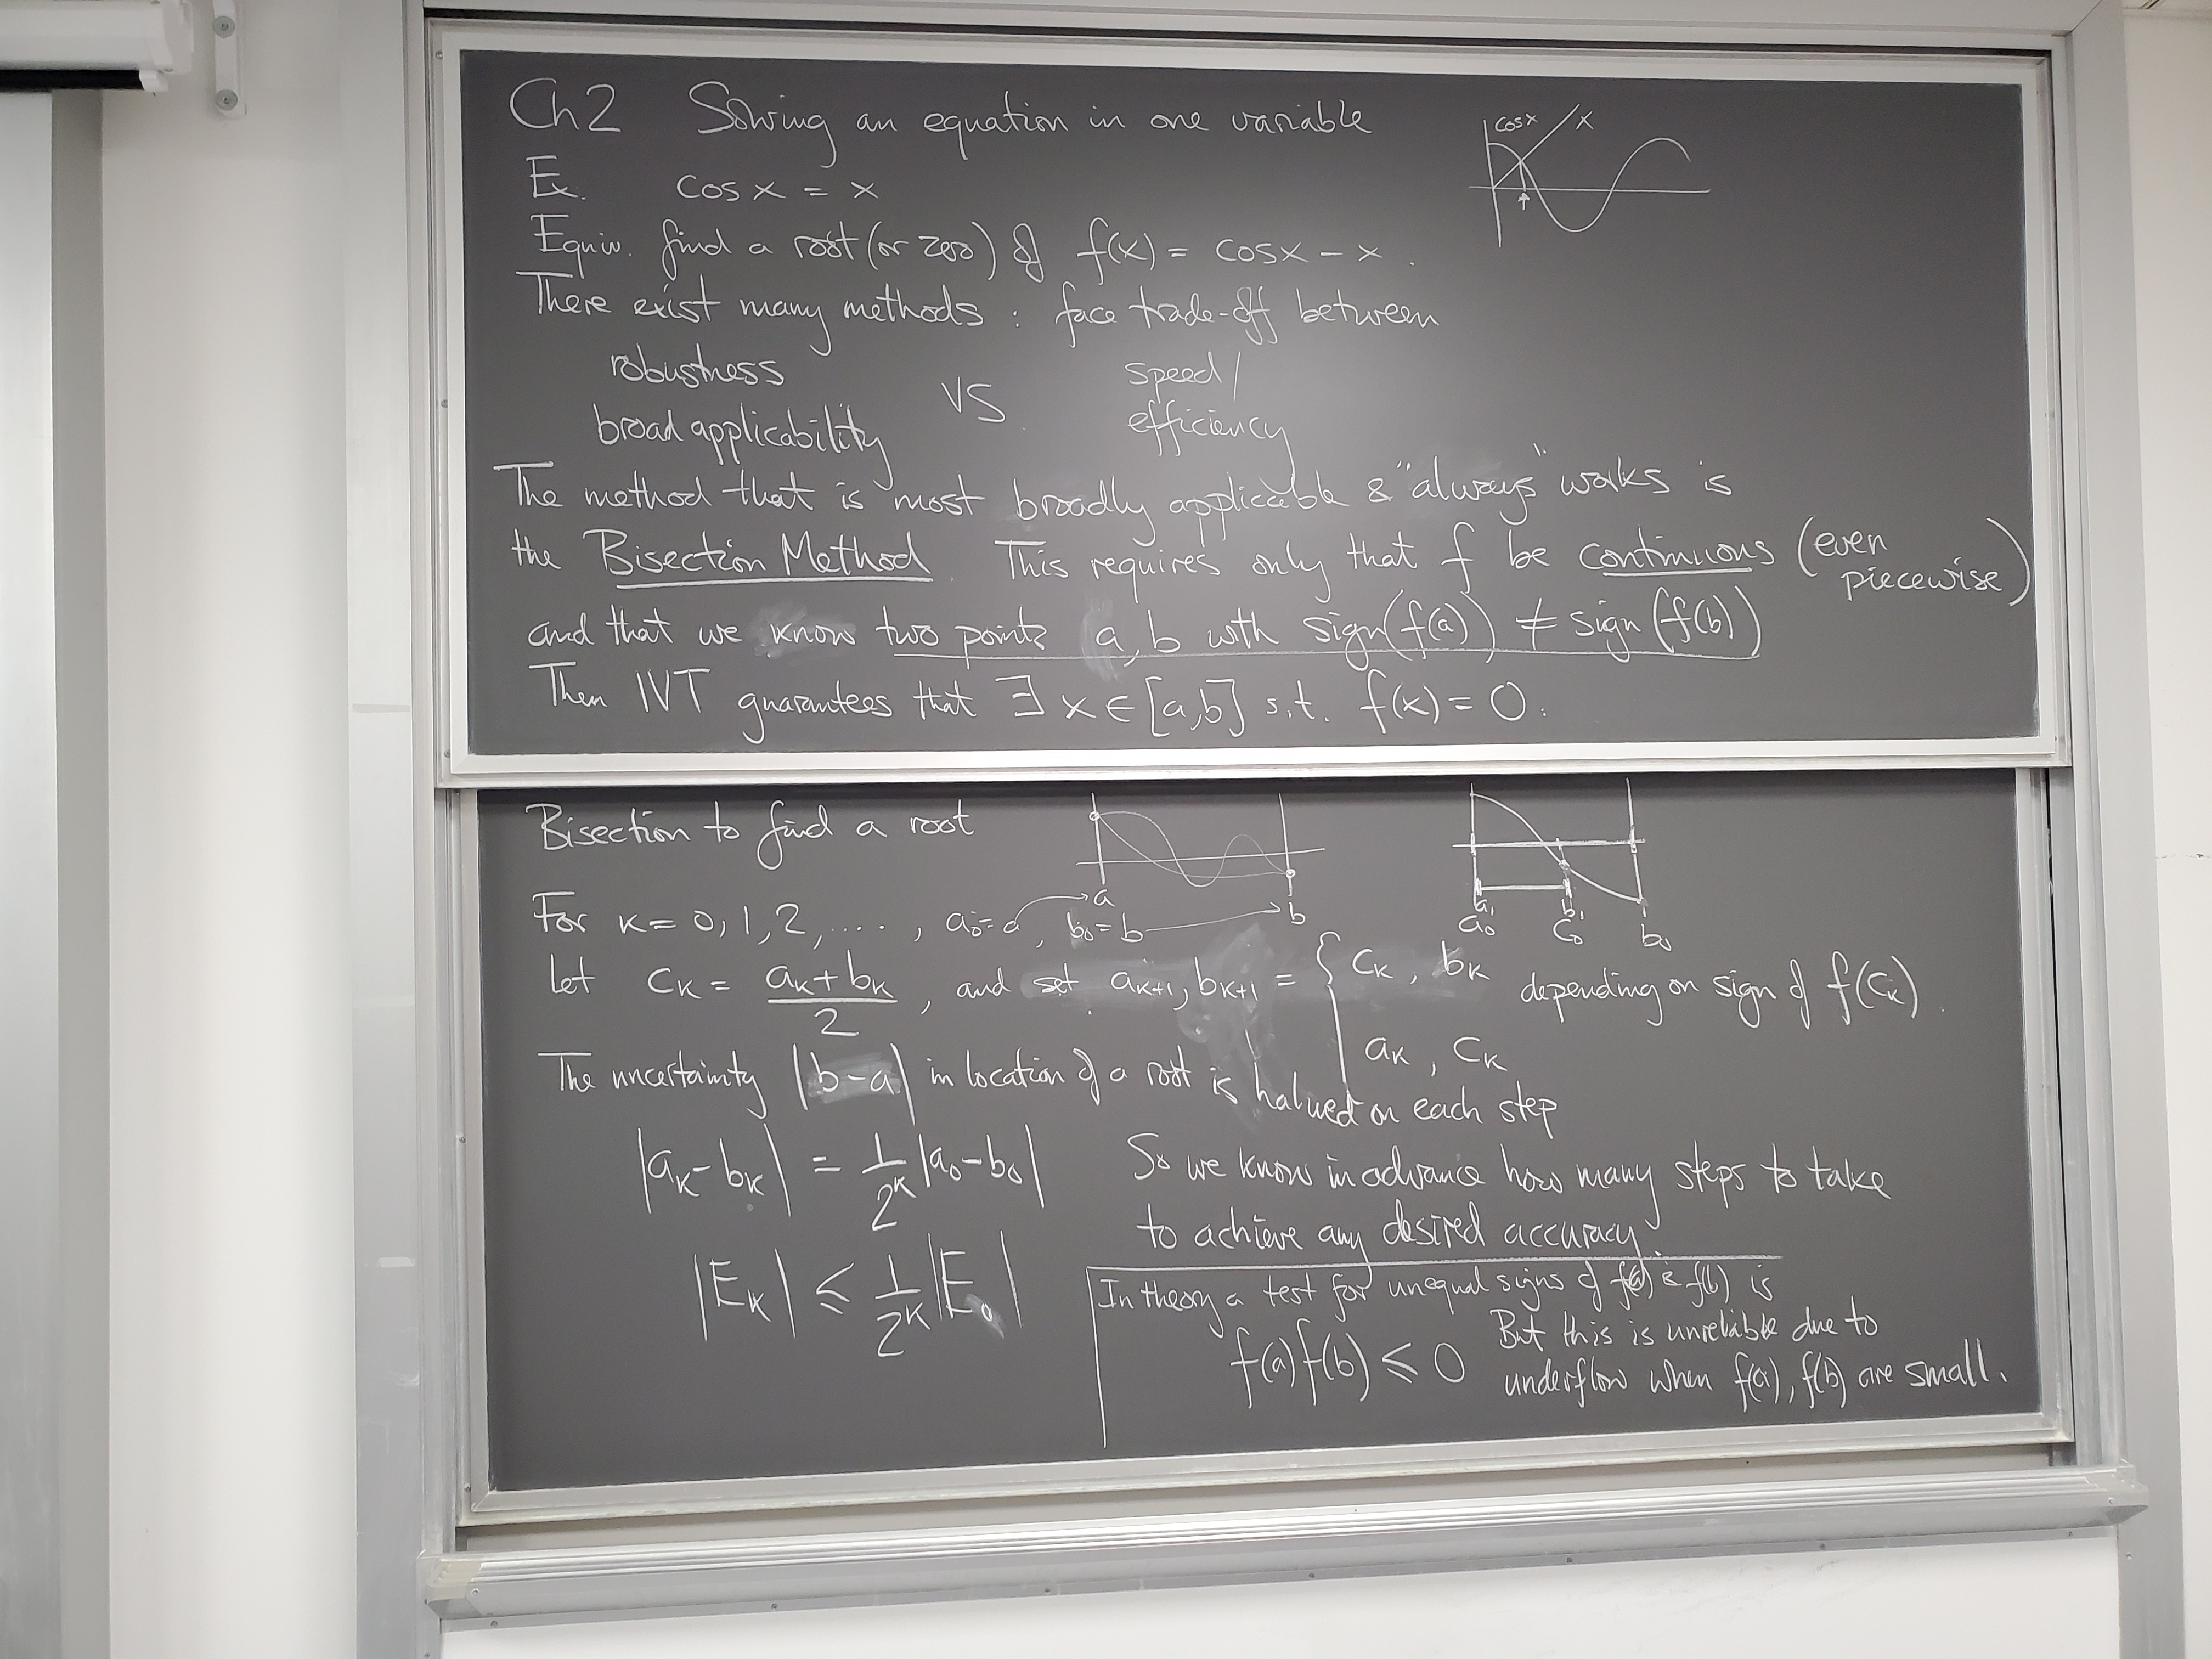 Ch2 Solving an equation in one variable
cosx x
Ex. cos x = x
Equiv. find a root (or zero) of f(x) = cosx - x .
There exist many methods : face trade-off between
robustness VS speed/
broad applicability efficiency
The method that is most broadly applicable & "always" works is
the Bisection Method. This requires only that f be continuous (even piecewise)
and that we know two points a, b with sign(f(a)) ≠ sign(f(b))
Then IVT guarantees that ∃ x ∈ [a,b] s.t. f(x) = 0.
Bisection to find a root
a b
a₁ b₁
a₀ c₀ b₀
For k = 0, 1, 2, ...., a₀ = a, b₀ = b
Let cₖ = (aₖ + bₖ)/2 , and set aₖ₊₁, bₖ₊₁ = { cₖ , bₖ depending on sign of f(cₖ).
aₖ , cₖ
The uncertainty |b-a| in location of a root is halved on each step
|aₖ - bₖ| = 1/2ᵏ |a₀ - b₀|
So we know in advance how many steps to take
to achieve any desired accuracy.
|Eₖ| ≤ 1/2ᵏ |E₀|
In theory a test for unequal signs of f(a) & f(b) is
f(a)f(b) ≤ 0 But this is unreliable due to
underflow when f(a), f(b) are small.